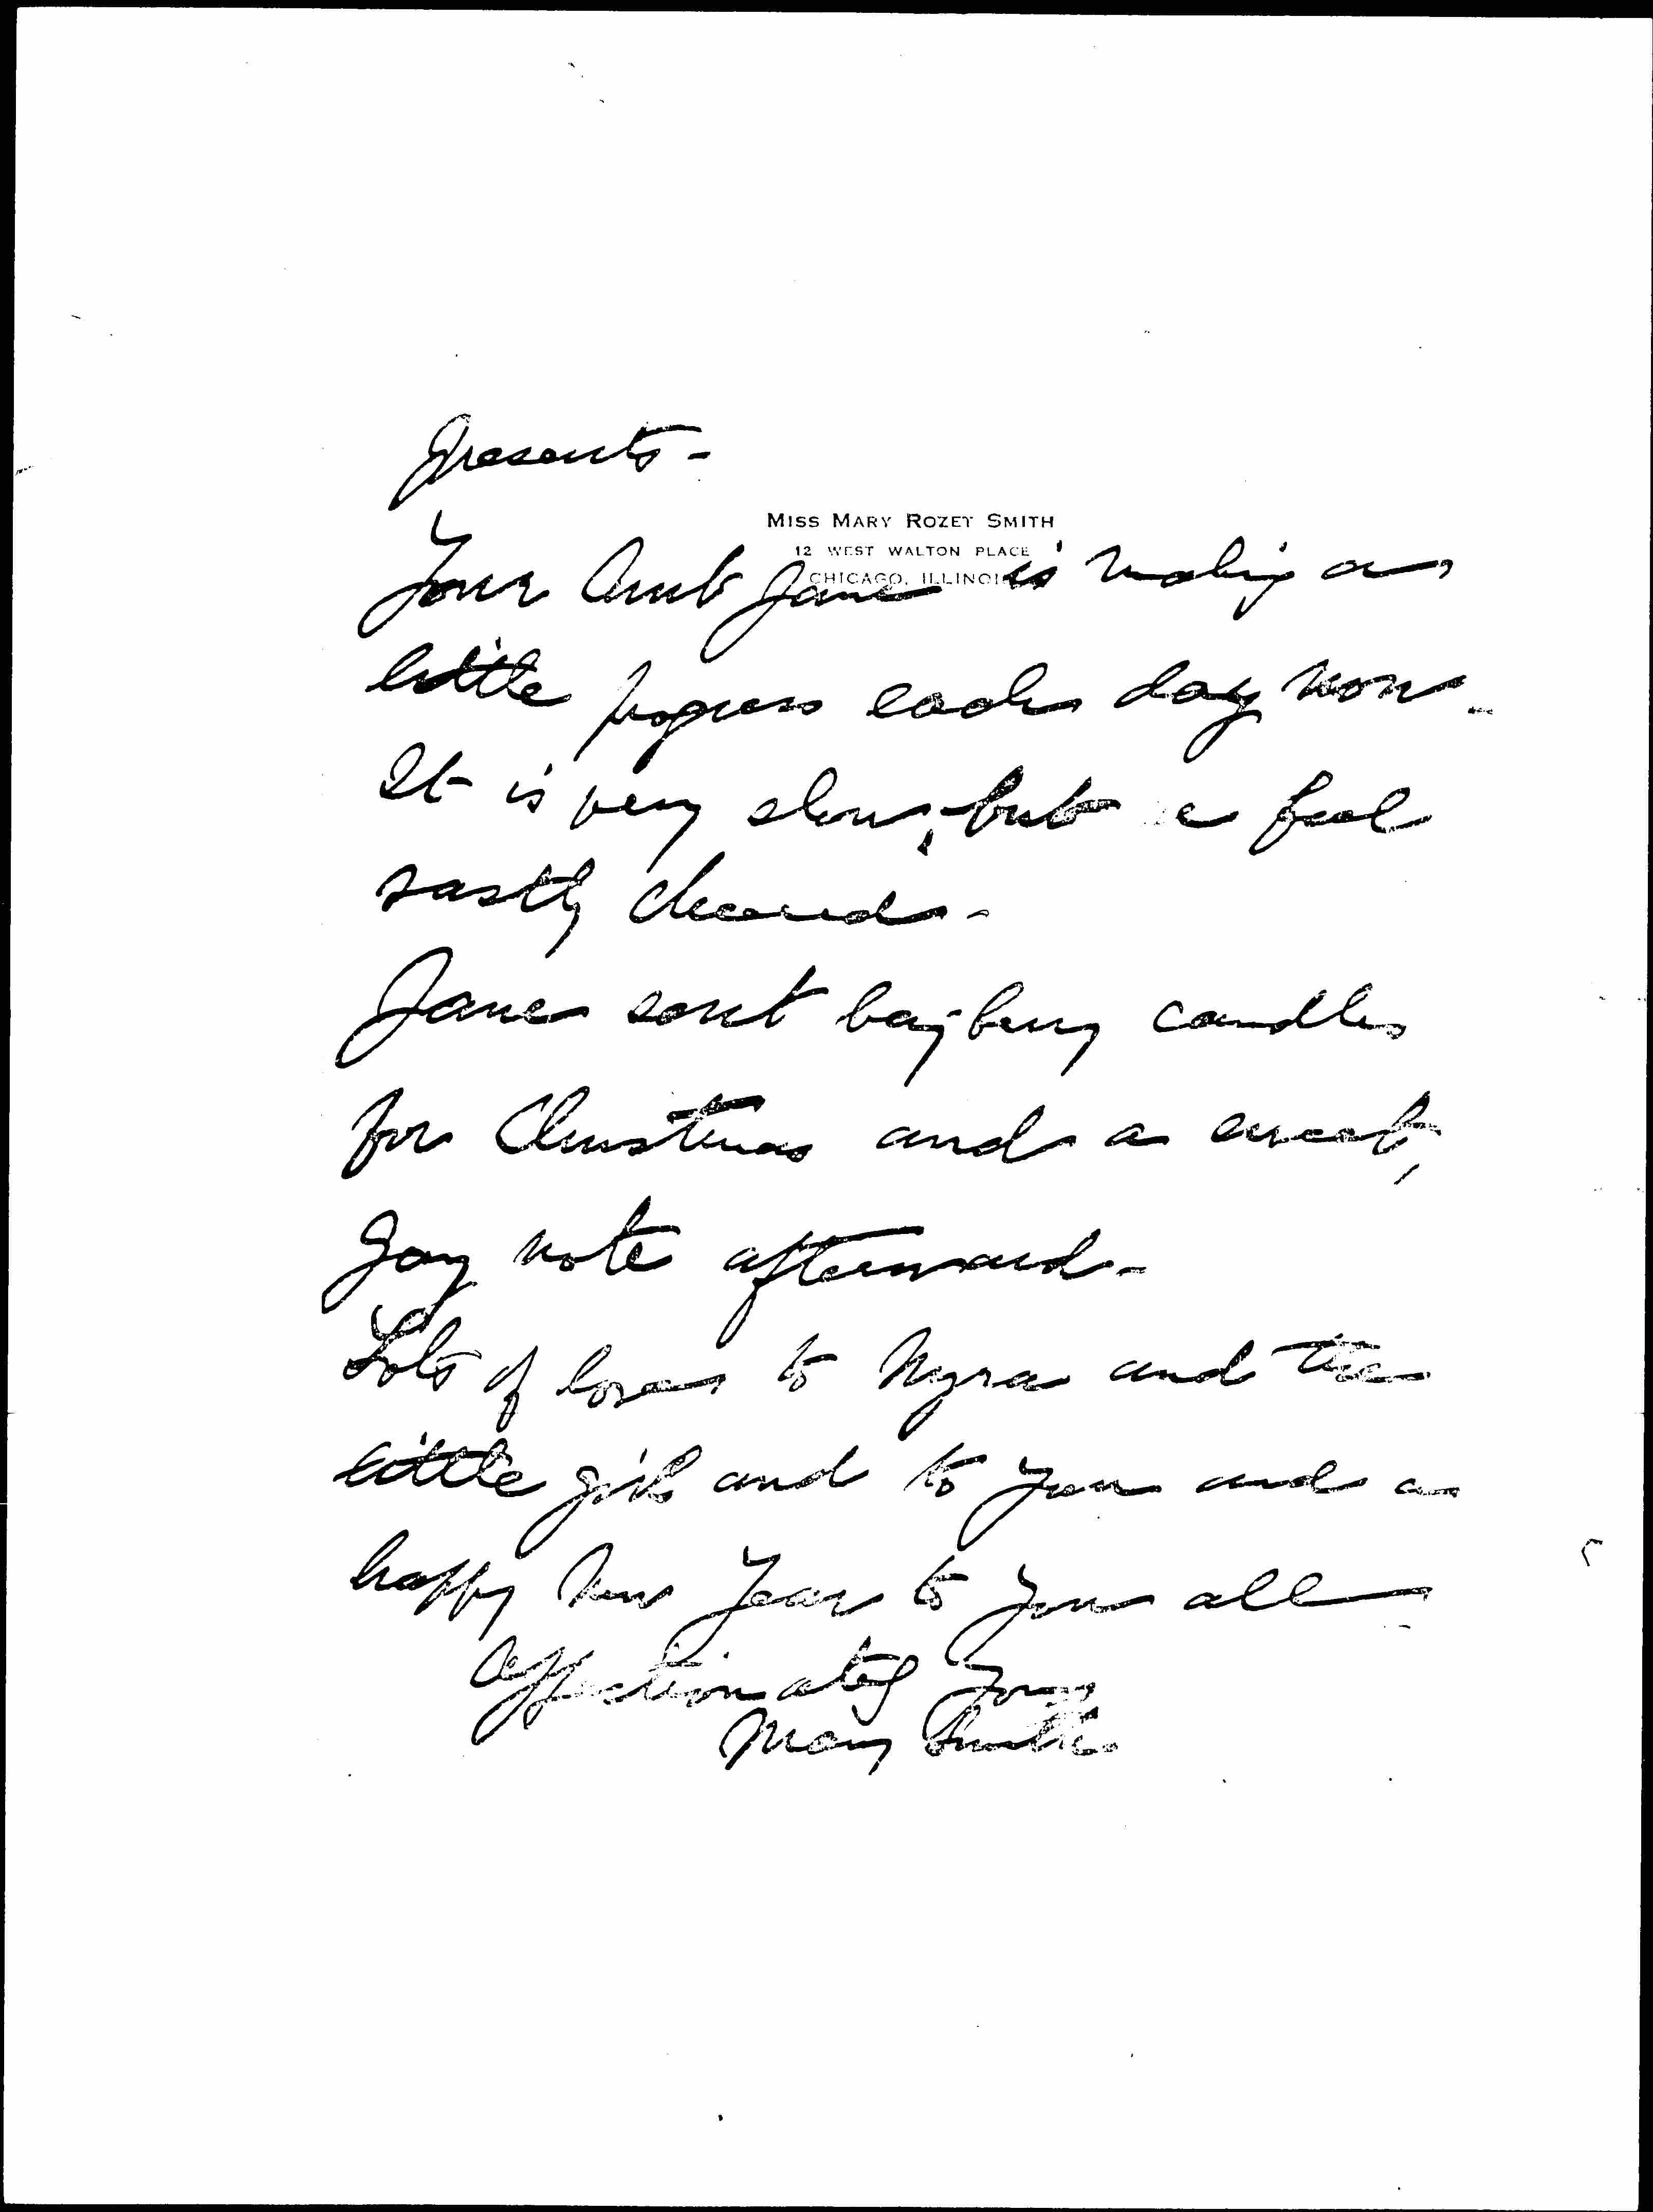 presents -
MISS MARY ROZET SMITH
12 WEST WALTON PLACE
CHICAGO, ILLINOIS
Your Aunt Jane is making a
little progress each day now -
It is very slow, but we feel
vastly cheered -
Jane sent bayberry candles
for Christmas and a sweet,
gay note afterward -
Lots of love to Myra and the
little girls and to you and a
happy New Year to you all
Affectionately yours
Mary Smith